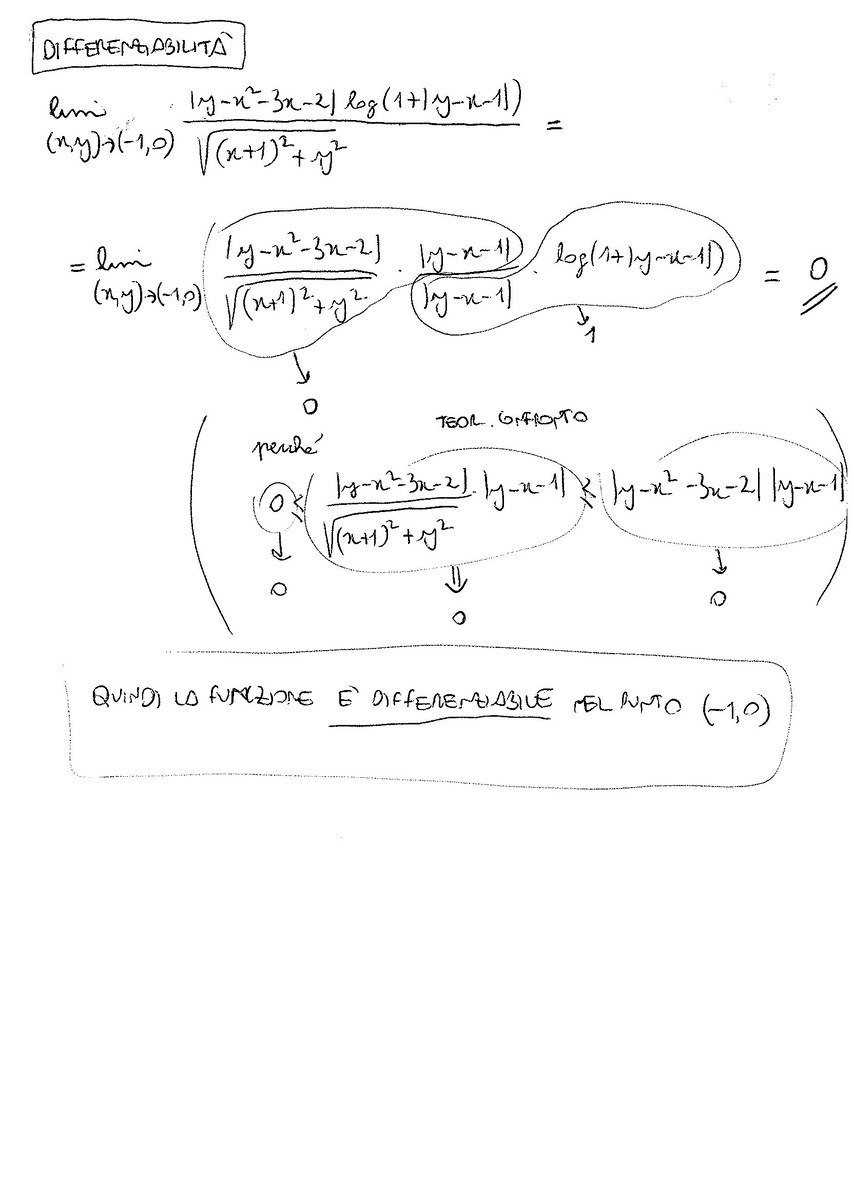 DIFFERENZIABILITÀ
lim (x,y)→(-1,0) |y-x²-3x-2| log(1+|y-x-1|) / √((x+1)²+y²) =
= lim (x,y)→(-1,0) |y-x²-3x-2| / √((x+1)²+y²) · |y-x-1| / |y-x-1| · log(1+|y-x-1|) = 0
↓ 1
↓ 0
TEOR. CONFRONTO
perché
0 ≤ |y-x²-3x-2| / √((x+1)²+y²) · |y-x-1| ≤ |y-x²-3x-2| |y-x-1|
↓ 0 ⇓ 0 ↓ 0
QUINDI LA FUNZIONE È DIFFERENZIABILE NEL PUNTO (-1,0)